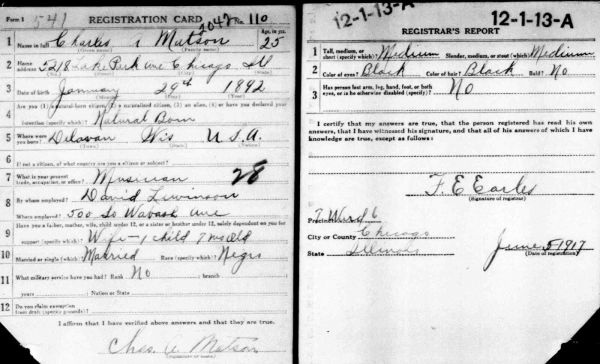 Form 1 541 REGISTRATION CARD No. 110
1 Name in full Charles A Matson Age, in yrs. 25
(Given name) (Family name)
2 Home address 5218 Lake Park ave Chicago Ill
3 Date of birth January 29th 1892
(Month) (Day) (Year)
4 Are you (1) a natural-born citizen, (2) a naturalized citizen, (3) an alien, (4) or have you declared your
intention (specify which)? Natural Born
5 Where were you born? Delavan Wis U.S.A.
(Town) (State) (Nation)
6 If not a citizen, of what country are you a citizen or subject?
7 What is your present trade, occupation, or office? Musician 28
8 By whom employed? David Lewinson
Where employed? 500 So Wabash ave
9 Have you a father, mother, wife, child under 12, or a sister or brother under 12, solely dependent on you for
support (specify which)? Wife - 1 child 7 mos old
10 Married or single (which)? Married Race (specify which)? Negro
11 What military service have you had? Rank No branch
years Nation or State
12 Do you claim exemption from draft (specify grounds)?
I affirm that I have verified above answers and that they are true.
Chas. A. Matson
12-1-13-A
12-1-13-A
REGISTRAR'S REPORT
1 Tall, medium, or short (specify which)? Medium Slender, medium, or stout (which)? Medium
2 Color of eyes? Black Color of hair? Black Bald? No
3 Has person lost arm, leg, hand, foot, or both eyes, or is he otherwise disabled (specify)? No
I certify that my answers are true, that the person registered has read his own
answers, that I have witnessed his signature, and that all of his answers of which I have
knowledge are true, except as follows:
F. E. Earles
(Signature of registrar)
Precinct 7 Ward 6
City or County Chicago
State Illinois June 5 1917
(Date of registration)